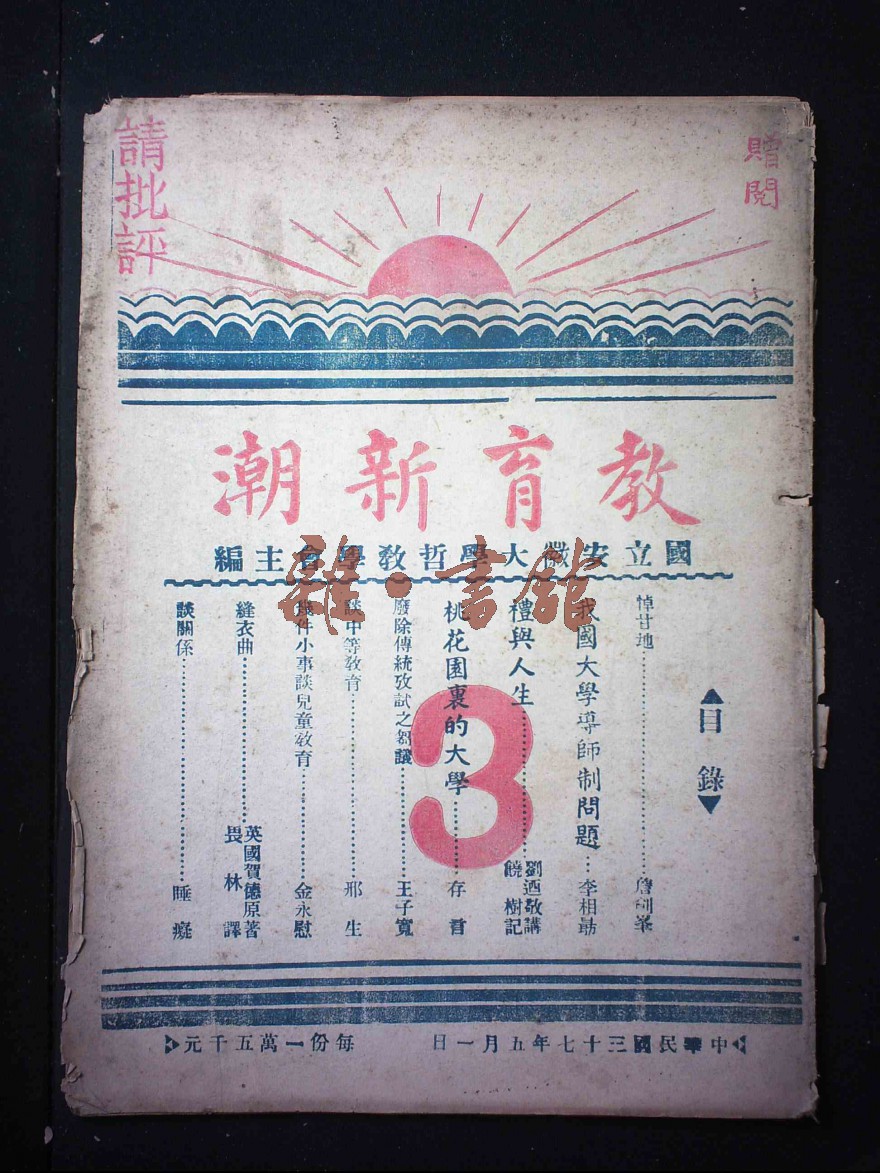 請批評
贈閱
教育新潮
國立安徽大學哲教學會主編
雜·書館
3
▲目錄▼
悼甘地
我國大學導師制問題……李相勗
禮與人生……劉迺敬講
饒樹記
桃花園裏的大學……存言
廢除傳統攷試之芻議……王子寬
談中等教育……邢生
幾件小事談兒童教育……金永慰
縫衣曲……英國賀德原著
畏林譯
談關係……睡癡
中華民國三十七年五月一日
每份一萬五千元